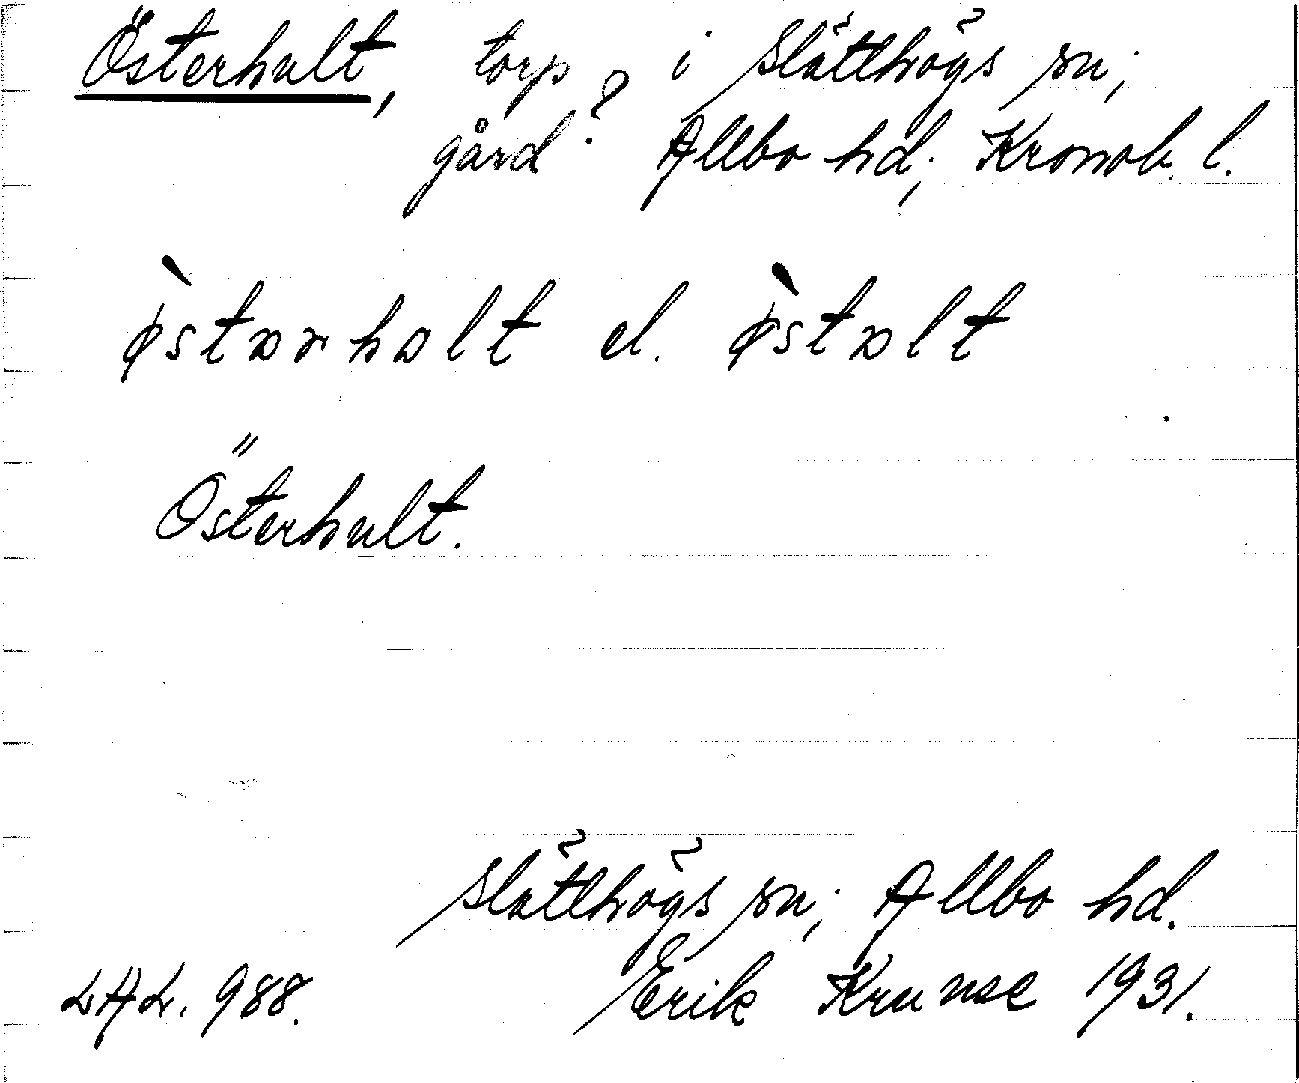 Österhult, torp i Slätthögs sn;
gård? Allbo hd; Kronob. l.
ø̀stərhəlt el. ø̀stəlt
Österhult.
Slätthögs sn; Allbo hd.
LAL. 988. Erik Kruuse 1931.